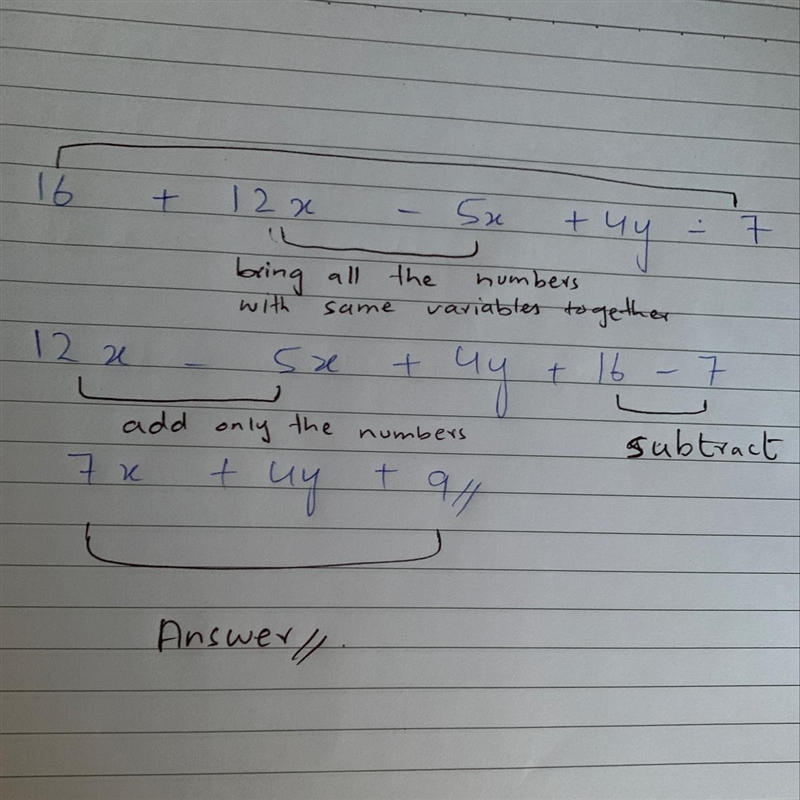 16 + 12x - 5x + 4y ÷ 7
bring all the numbers
with same variables together
12x - 5x + 4y + 16 - 7
add only the numbers
subtract
7x + 4y + 9//
Answer//.